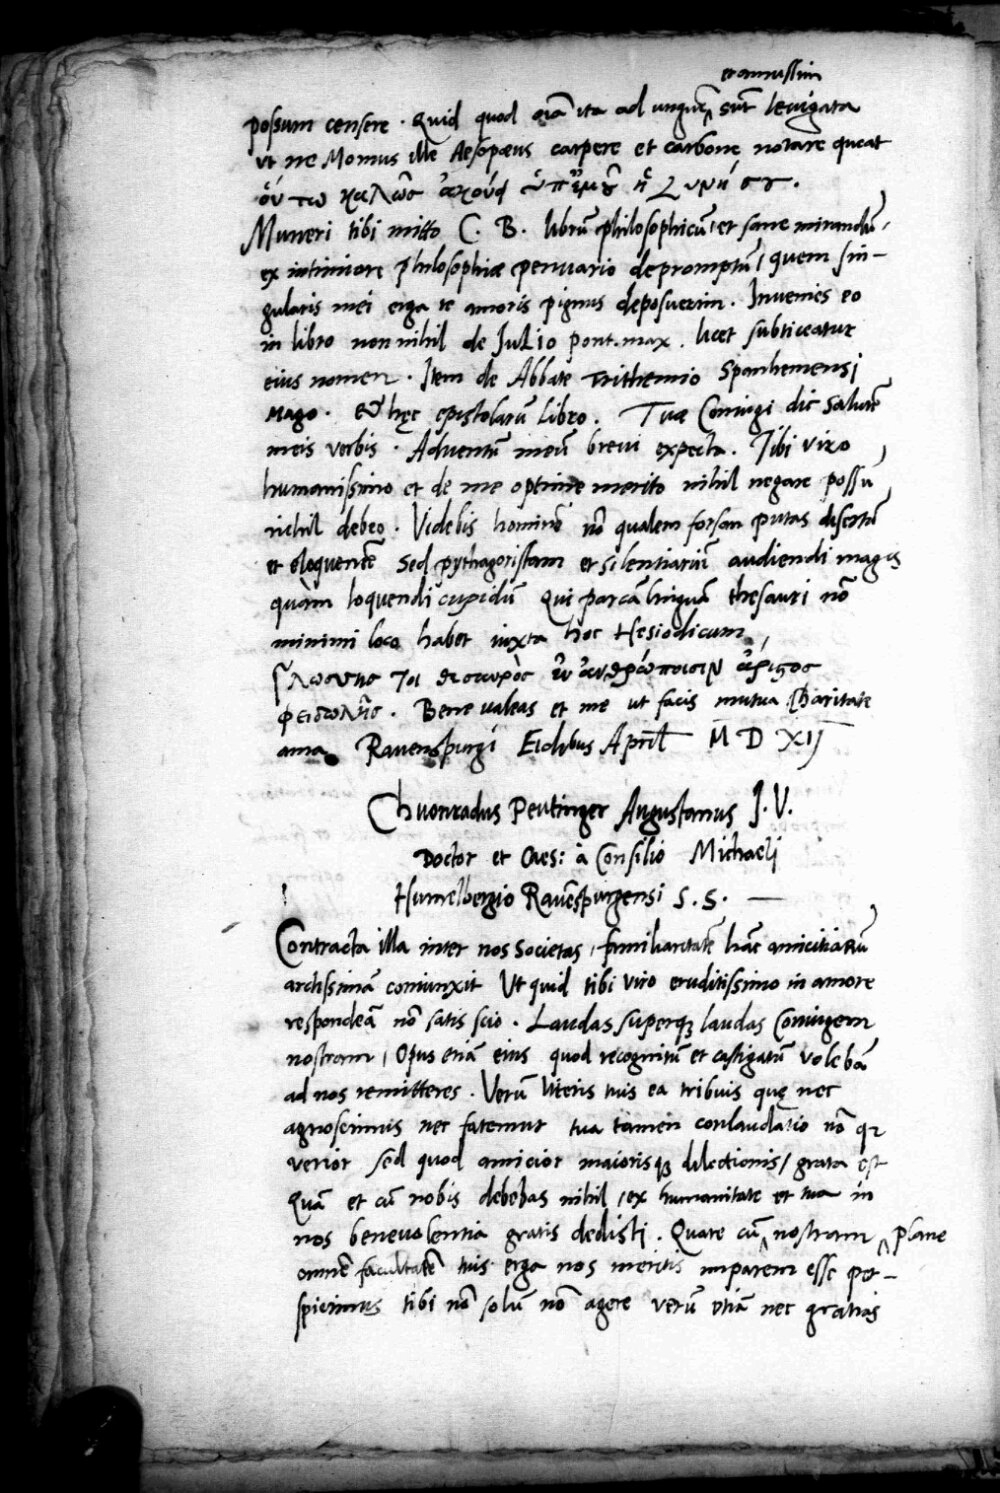 et amussim
possum censere . Quid quod oı̃a ita ad unguẽ sũt levigata
ut ne Momus ille Aesopæus carpere et carbone notare queat
Muneri tibi mitto C. B. librũ philosophicũ, et sane mirandũ,
ex intimiore philosophiæ penuario depromptũ, quem sin-
gularis mei erga te amoris pignus deposuerim . Invenies eo
in libro non nihil de Julio pont. max . licet subticeatur
eius nomen . Item de Abbate Trithemio Spanhemensi
Mago . epistolarũ libro . Tuæ Coniugi dic salutẽ
meis verbis . Adventũ meũ brevi expecta . Tibi viro
humanissimo et de me optime merito nihil negare possũ
nihil debeo . Videbis hominẽ nõ qualem forsan putas disertũ
et eloquentẽ Sed pythagoristam et silentiariũ audiendi magis
quàm loquendi cupidũ Qui parcã linguã thesauri nõ
minimi loco habet iuxta hoc Hesiodicum,
Γλώσσης τοι θησαυρὸς ἐν ἀνθρώποισιν ἄριστος
φειδωλῆς . Bene valeas et me ut facis mutua charitate
ama Ravenspurgi Eidibus April M D XIJ
Chuonradus Peutinger Augustanus J. V.
Doctor et Caes: à Consilio Michaeli
Humelbergio Ravẽspurgensi S. S. —
Contracta illa inter nos societas, familiaritatẽ hãc amicitiarũ
arctissimã coniunxit Ut quid tibi viro eruditissimo in amore
respondeã nõ satis scio . Laudas superqꝫ laudas Coniugem
nostram, Opus etiã eius quod recognitũ et castigatũ volebã
ad nos remitteres . Verũ literis tuis ea tribuis quę nec
agnoscimus nec fatemur tua tamen conlaudatio nõ qꝛ
verior sed quod amicior maiorisqꝫ dilectionis, grata est
Quã et cũ nobis debebas nihil, ex humanitate et tua in
nos benevolentia gratis dedisti . Quare cũ nostram plane
omnẽ facultatẽ tuis erga nos meritis imparem esse per-
spicimus tibi nõ solũ nõ agere verũ etiã nec gratias